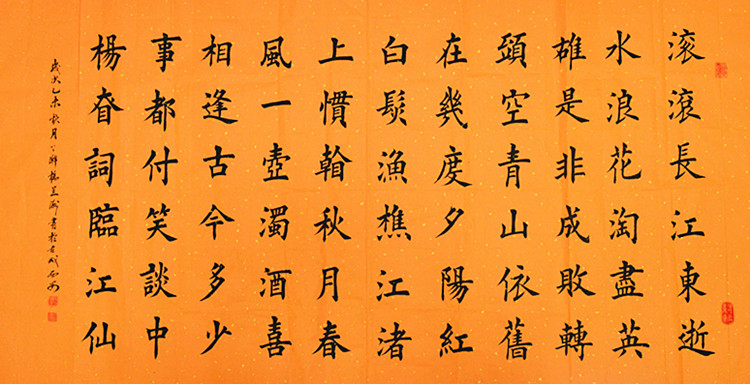 滚滾長江東逝
水浪花淘盡英
雄是非成敗轉
頭空青山依舊
在幾度夕陽紅
白髮漁樵江渚
上慣看秋月春
風一壺濁酒喜
相逢古今多少
事都付笑談中
楊昚詞臨江仙
歲次乙未秋月 書於古城西安